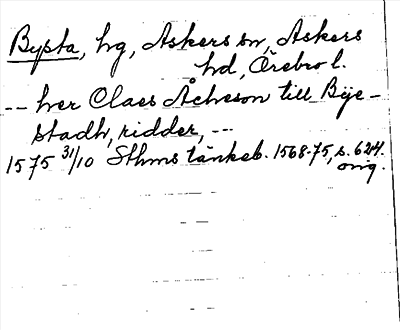 Bysta, hg, Askers sn, Askers
hd, Örebro l.
-- her Claes Åcheson till Bije-
stadh, ridder, --
1575 31/10 Sthms tänkeb. 1568-75, s. 624.
orig.